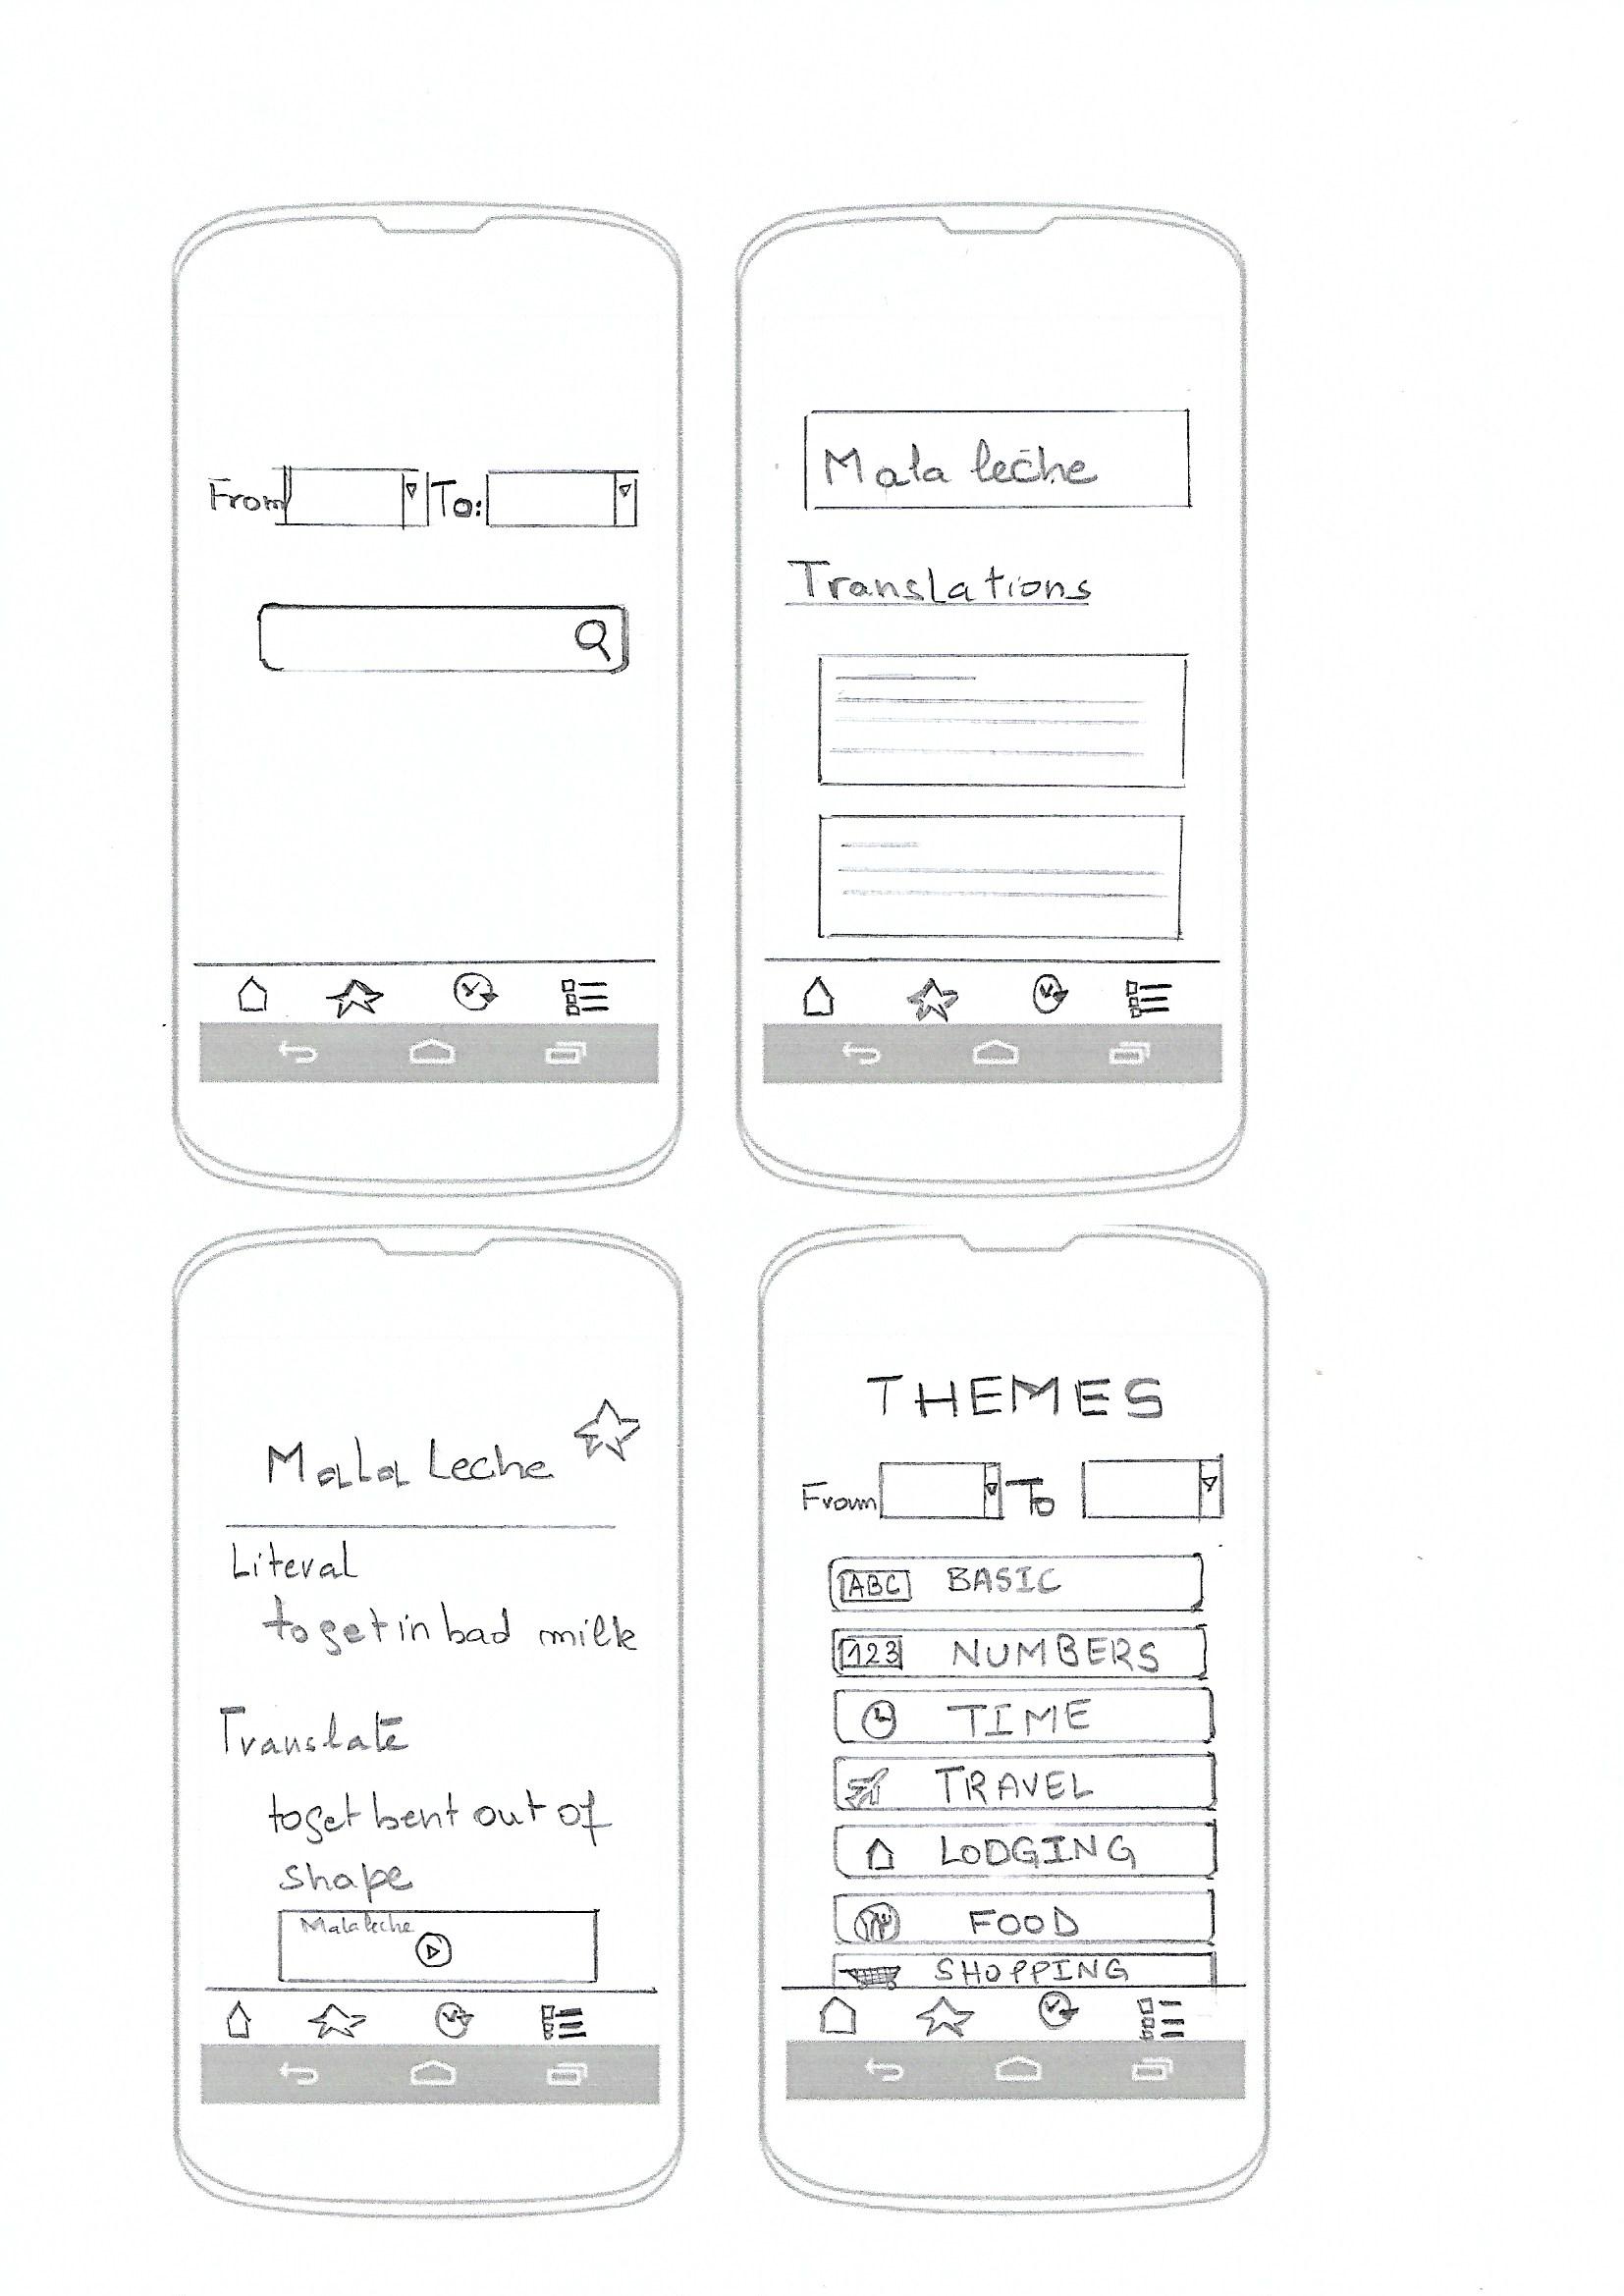 From To:
Mala leche
Translations
Mala Leche
Literal
to get in bad milk
Translate
to get bent out of
shape
Mala leche
THEMES
From To
ABC BASIC
123 NUMBERS
TIME
TRAVEL
LODGING
FOOD
SHOPPING